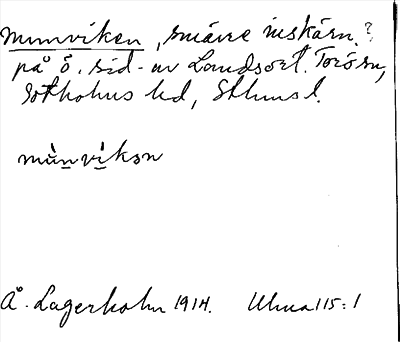 Munviken, smärre inskärn.?
på ö. sid. av Landsort. Torö sn,
Sotholms hd, Sthlms l.
mùnvìkən
Å. Lagerholm 1914. Uhua 115:1